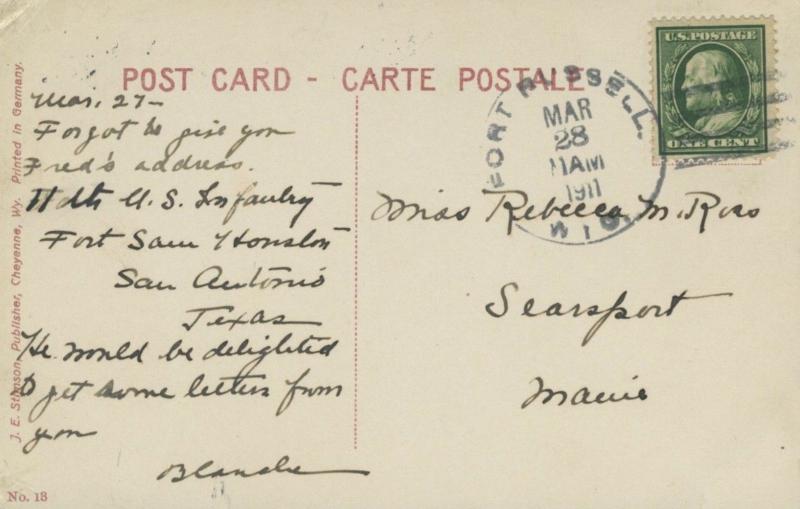 POST CARD - CARTE POSTALE
U.S. POSTAGE
ONE CENT
FORT RUSSELL
MAR
28
11 AM
1911
WYO.
Mar. 27-
Forgot to give you
Fred's address.
11th U.S. Infantry
Fort Sam Houston
San Antonio
Texas
He would be delighted
to get some letters from
you
Blanche
Miss Rebecca M. Ross
Searsport
Maine
J. E. Stimson, Publisher, Cheyenne, Wy. Printed in Germany.
No. 18